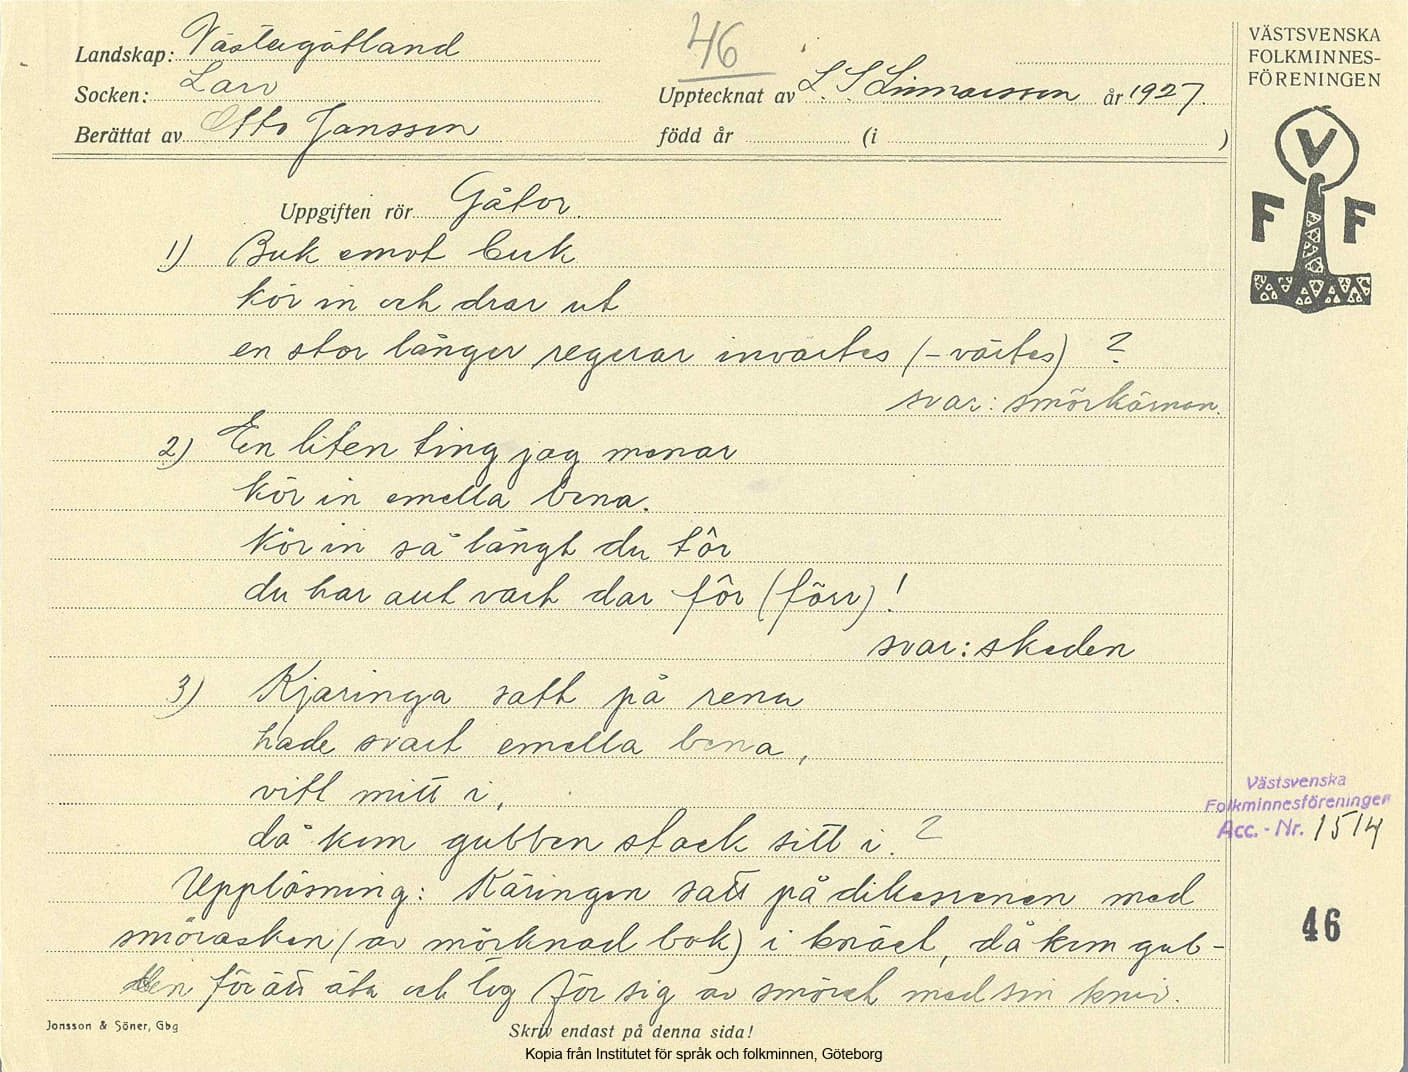 Landskap: Västergötland
46
Socken: Larv
Upptecknat av L. S. Linnarsson år 1927.
Berättat av Otto Jansson
född år (i )
VÄSTSVENSKA
FOLKMINNES-
FÖRENINGEN
V
F F
Uppgiften rör Gåtor.
1) Buk emot buk
kör in och drar ut
en stor länger regerar invärtes (-värtes) ?
svar: smörkärnan.
2) En liten ting jag menar
kör in emella bena.
Kör in så långt du tôr
du har aut vart där fôr (förr)!
svar: skeden
3) Kjäringa satt på rena
hade svart emella bena,
vitt mitt i,
då kom gubben stack sitt i. ?
Upplösning: Käringen satt på dikesrenen med
smörasken (av mörknad bok) i knäet, då kom gub-
ben för att äta och tog för sig av smöret med sin kniv.
Västsvenska
Folkminnesföreningen
Acc. - Nr. 1514
46
Jonsson & Söner, Gbg
Skriv endast på denna sida!
Kopia från Institutet för språk och folkminnen, Göteborg